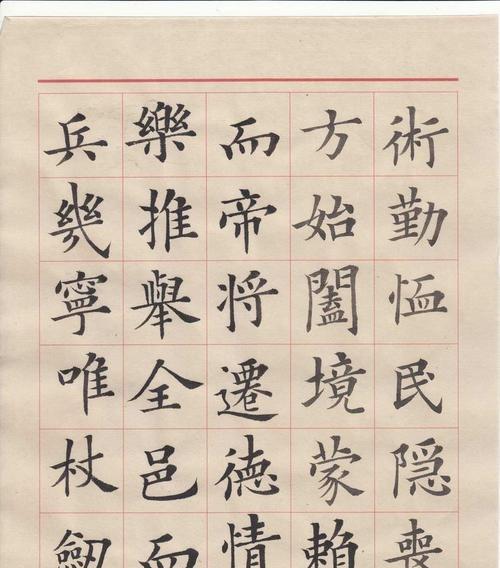 術勤恤民隱喪
方始闔境蒙賴
而帝將遷德情
樂推舉全邑而
兵幾寧唯杖劒